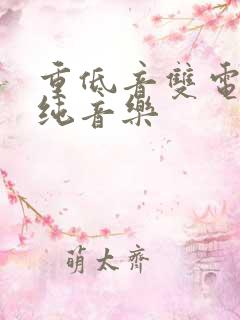 重低音雙電
纯音樂
萌太齊